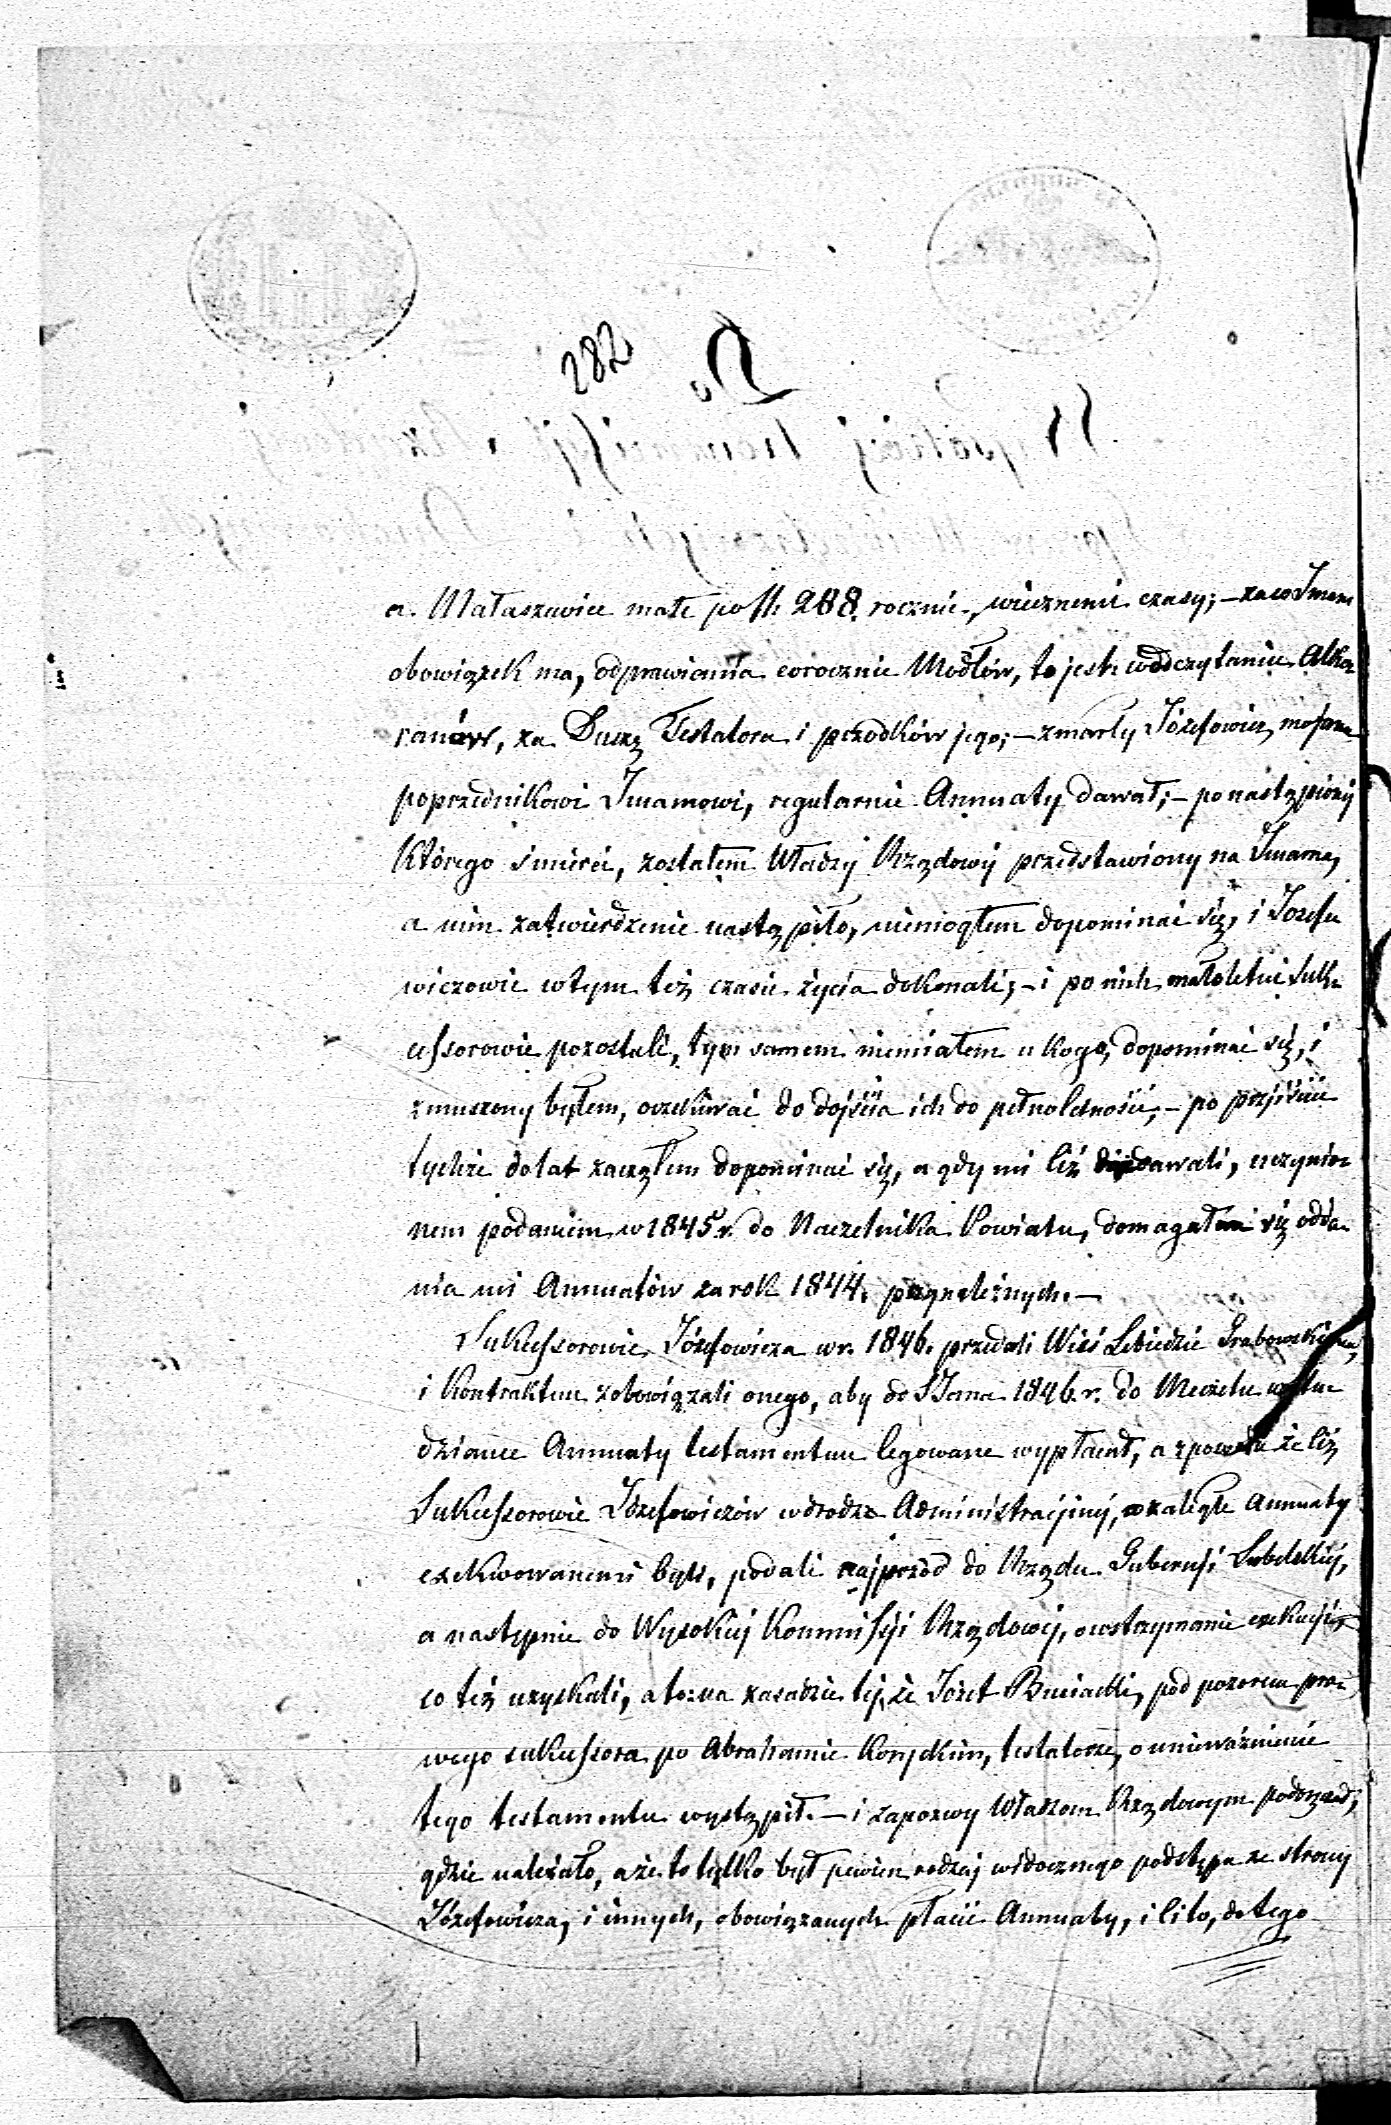 282
a. Małaszewice małe po fl: 288. rocznie, wiecznemi czasy; – za co Imam
obowiązek ma, odprawiania corocznie Modłów, to jest odczytania Alko-
ranów, za Duszę Testatora i przodków jego; – zmarły Józefowicz, mojemu
poprzednikowi Imamowi, regularnie Annuaty dawał; – po nastąpioney
którego śmierci, zostałem Władzy Rządowy przedstawiony na Imama,
a nim zatwierdzenie nastąpiło, niemogłem dopominać się, i Józefo-
wiczowie w tym też czasie życia dokonali; – i po nich małoletni Suk-
cessorowie pozostali, tym samem niemiałem u kogo, dopominać się, i
zmuszony byłem, oczekiwać do dojścia ich do pełnoletności; – po przyjściu
tychże do lat zacząłem dopominać się, a gdy mi ciż dawali, uczynio-
nem podaniem w 1845 r. do Naczelnika Powiatu, domagałem się odda-
nia mi Annuatów za rok 1844. przynależnych. –
Sukcessorowie Józefowicza w r. 1846. przedali Wieś Lebiedzie Grabowskiemu,
i Kontraktem zobowiązali onego, aby do S Jana 1846. r. do Meczetu
Annuaty testamentem legowane wypłacał, a z powodu że ciż
Sukcessorowie Józefowiczów w drodze Administracyjney, o zaległe Annuaty
exekwowanemi byli, podali najprzód do Rządu Gubernji Lubelskiej,
a następnie do Wysokiej Kommissyi Rządowej, o wstrzymanie exekucji,
co też uzyskali, a to: na zasadzie tej, że Józef Buczacki, pod pozorem pra-
wego sukcessora po Abrahamie Koryckim, testatorze, o unieważnienie
tego testamentu wystąpił. – i zapozwy Władzom Rządowym podoręczał,
gdzie należało, a że to tylko był pewien rodzaj widocznego podstępu ze strony
Józefowicza, i innych, obowiązanych płacić Annuaty, i ci to, do tego